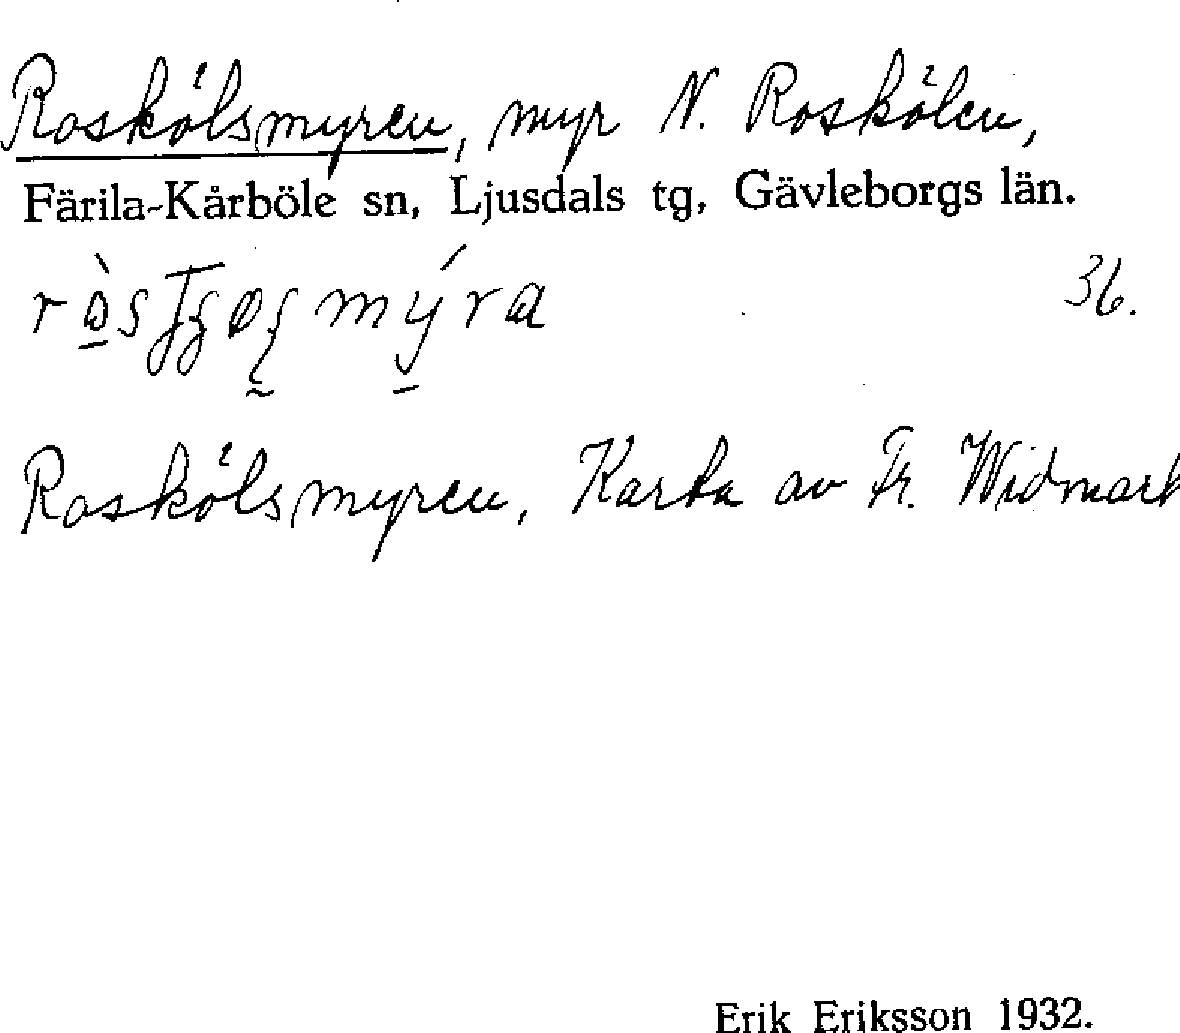 Roskölsmyren, myr N. Roskölen,
Färila-Kårböle sn, Ljusdals tg, Gävleborgs län.
36.
Roskölsmyren, Karta av Fr. Widmark
Erik Eriksson 1932.